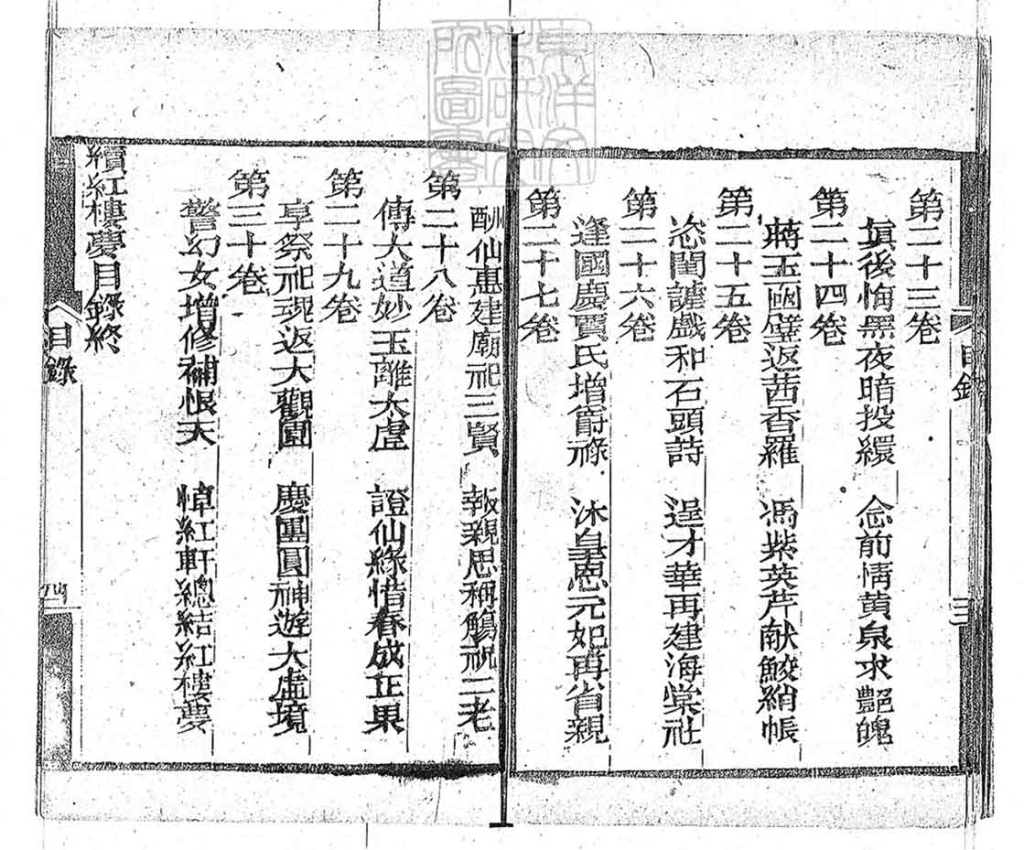 第二十三卷
填後悔黑夜暗投繯 念前情黄泉求艷魄
第二十四卷
蔣玉國璧返茜香羅 馮紫英芹献鮫綃帳
第二十五卷
恣閨謔戲和石頭詩 逞才華再建海棠社
第二十六卷
逢國慶賈氏增爵祿 沐皇恩元妃再省親
第二十七卷
酬仙惠建廟祀三賢 報親恩稱觴祝二老
第二十八卷
傳大道妙玉離太虛 證仙緣惜春成正果
第二十九卷
享祭祀魂返大觀園 慶團圓神遊太虛境
第三十卷
警幻女增修補恨天 悼紅軒總結紅樓夢
續紅樓夢目錄終
目錄
四
目錄
三